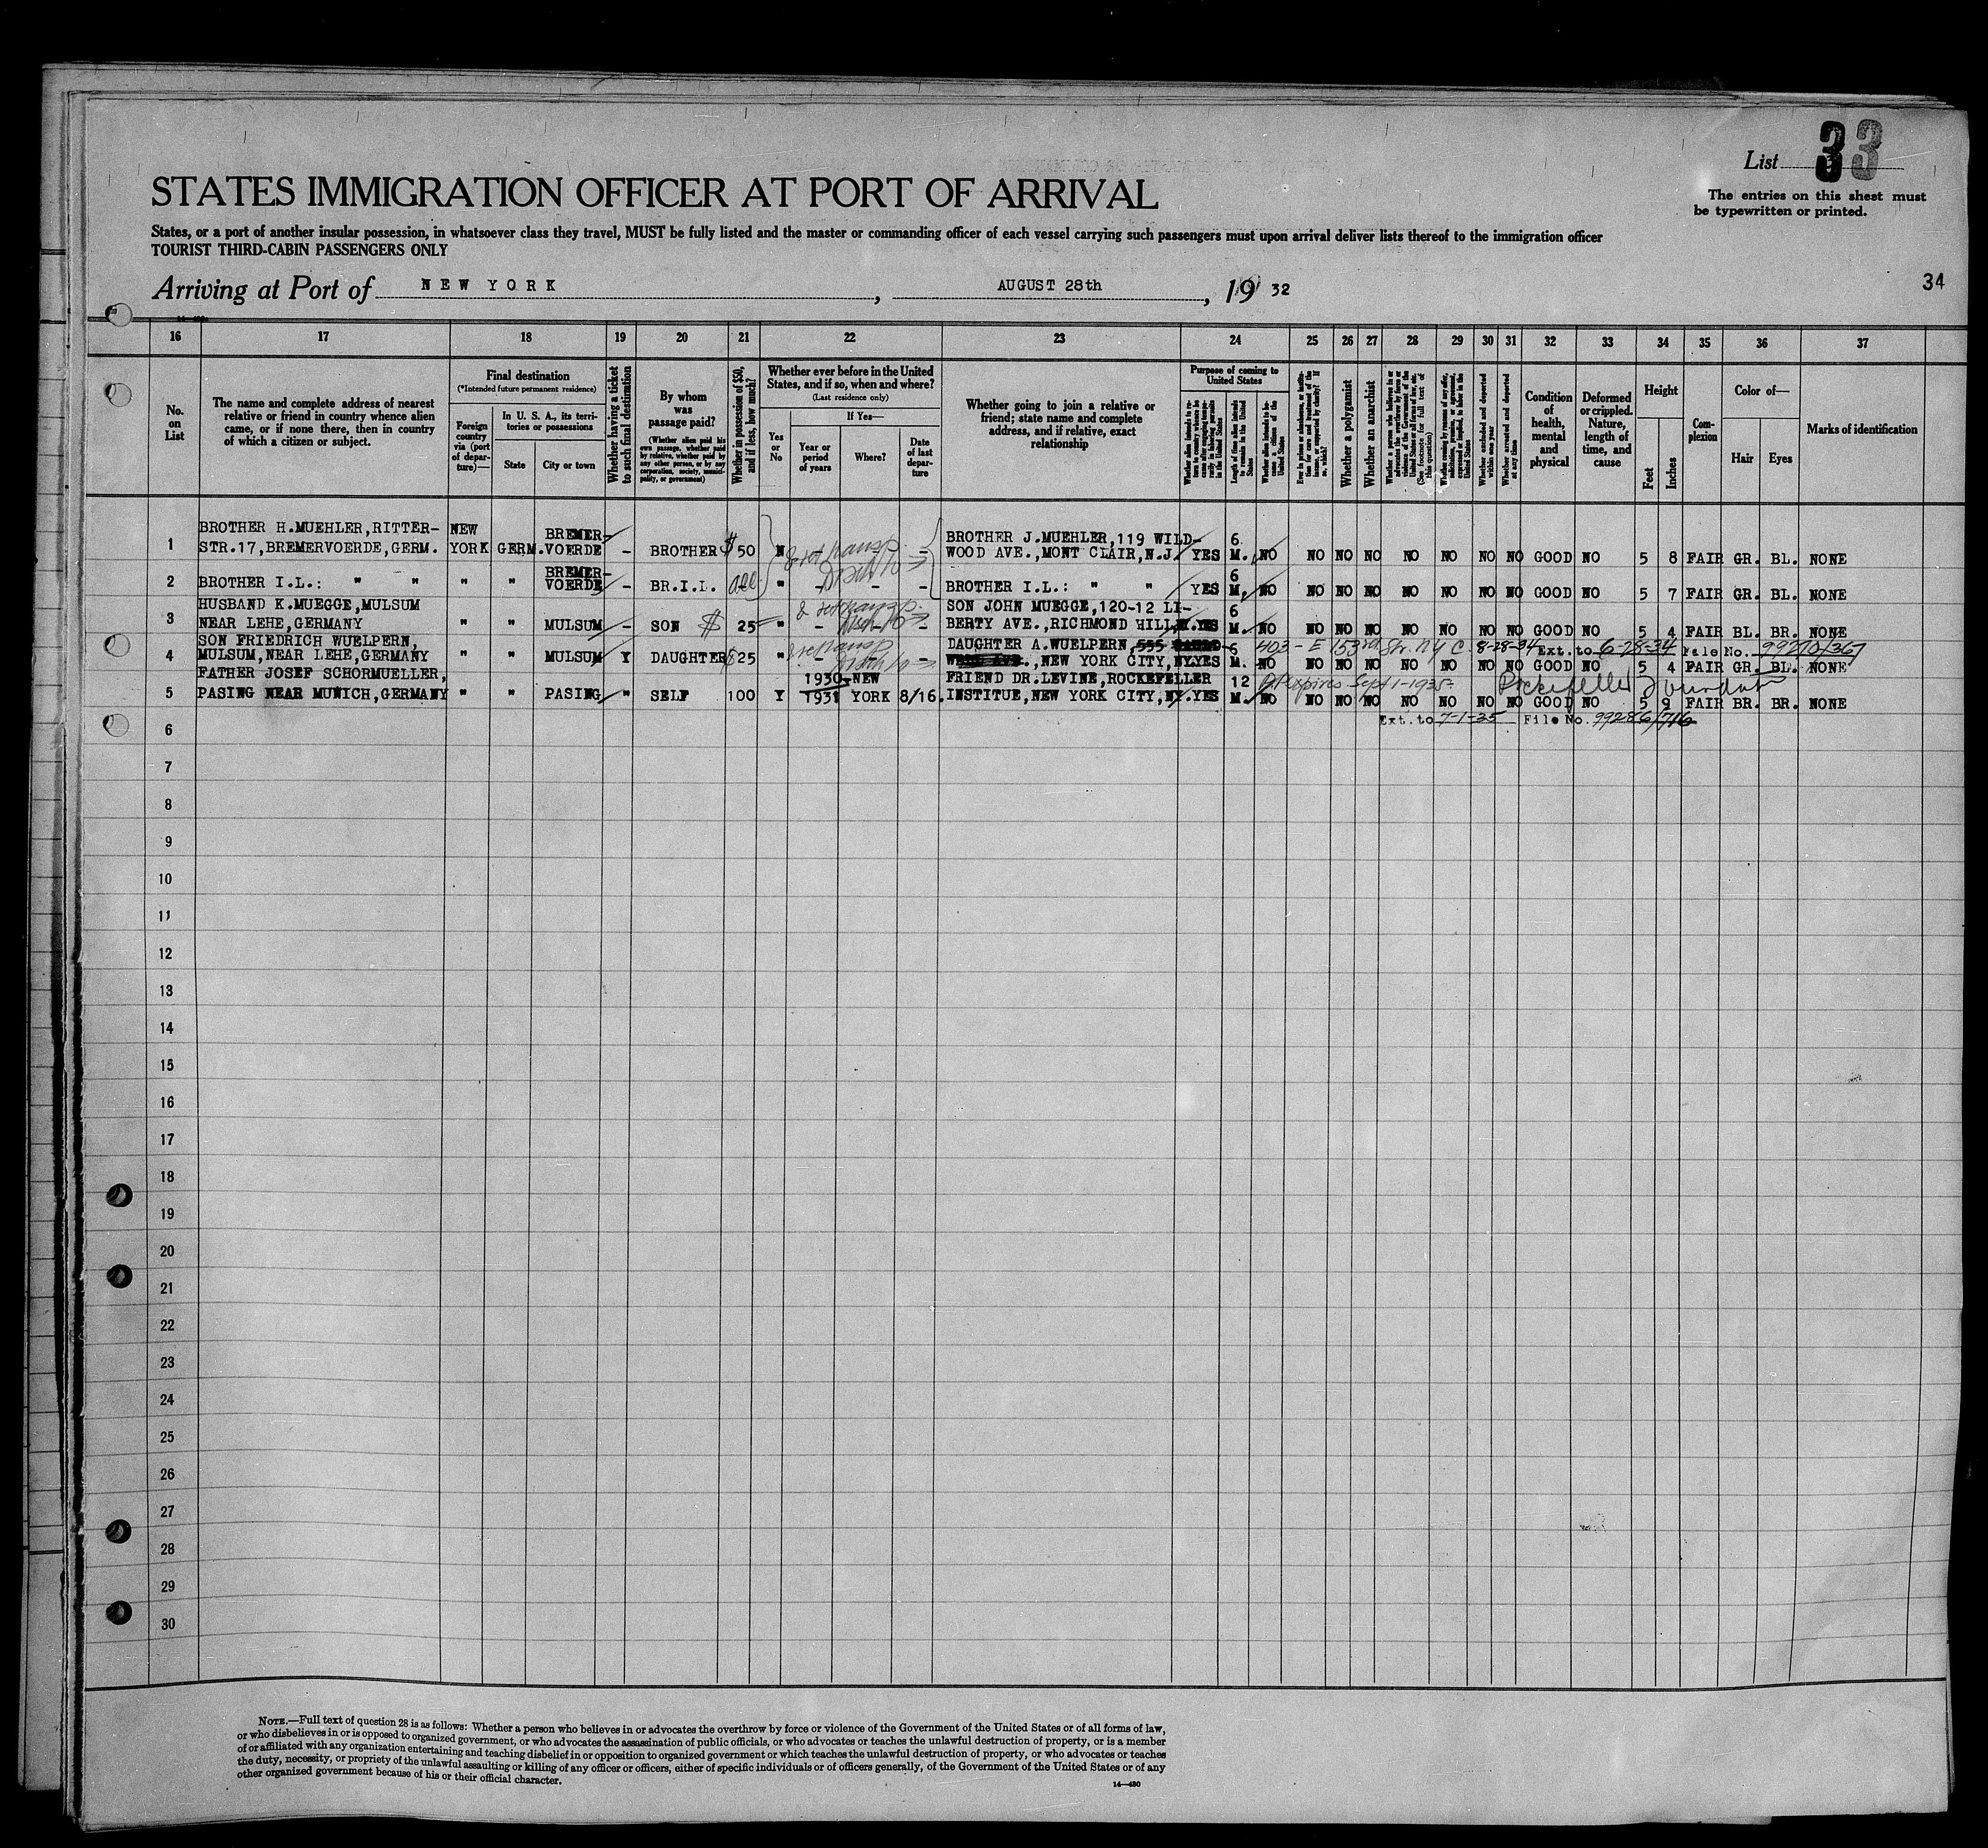 List 33
The entries on this sheet must
be typewritten or printed.
STATES IMMIGRATION OFFICER AT PORT OF ARRIVAL
States, or a port of another insular possession, in whatsoever class they travel, MUST be fully listed and the master or commanding officer of each vessel carrying such passengers must upon arrival deliver lists thereof to the immigration officer
TOURIST THIRD-CABIN PASSENGERS ONLY
Arriving at Port of NEW YORK, AUGUST 28th, 19 32
34
16 17 18 19 20 21 22 23 24 25 26 27 28 29 30 31 32 33 34 35 36 37
No.
on
List
The name and complete address of nearest
relative or friend in country whence alien
came, or if none there, then in country
of which a citizen or subject.
Final destination
(*Intended future permanent residence)
Foreign
country
via (port
of depar-
ture)—
In U. S. A., its terri-
tories or possessions
State
City or town
Whether having a ticket
to such final destination
By whom
was
passage paid?
(Whether alien paid his
own passage, whether paid
by relative, whether paid by
any other person, or by any
corporation, society, munici-
pality, or government)
Whether in possession of $50,
and if less, how much?
Whether ever before in the United
States, and if so, when and where?
(Last residence only)
Yes
or
No
If Yes—
Year or
period
of years
Where?
Date
of last
depar-
ture
Whether going to join a relative or
friend; state name and complete
address, and if relative, exact
relationship
Purpose of coming to
United States
Length of time alien intends
to remain in the United
States
Whether a polygamist
Whether an anarchist
(See footnote for full text of
this question)
Whether excluded and deported
within one year
Whether arrested and deported
at any time
Condition
of
health,
mental
and
physical
Deformed
or crippled.
Nature,
length of
time, and
cause
Height
Feet
Inches
Com-
plexion
Color of—
Hair
Eyes
Marks of identification
BROTHER H.MUEHLER,RITTER- NEW BREMER- BROTHER J.MUEHLER,119 WILD- 6
1 STR.17,BREMERVOERDE,GERM. YORK GERM. VOERDE - BROTHER $ 50 N - - - WOOD AVE.,MONT CLAIR,N.J. YES M. NO NO NO NO NO NO NO NO GOOD NO 5 8 FAIR GR. BL. NONE
BREMER- 6
2 BROTHER I.L.: " " " " VOERDE - BR.I.L. " - - - BROTHER I.L.: " " YES M. NO NO NO NO NO NO NO NO GOOD NO 5 7 FAIR GR. BL. NONE
HUSBAND K.MUEGGE,MULSUM SON JOHN MUEGGE,120-12 LI- 6
3 NEAR LEHE,GERMANY " " MULSUM - SON $ 25 " - - - BERTY AVE.,RICHMOND HILL,N.Y. YES M. NO NO NO NO NO NO NO NO GOOD NO 5 4 FAIR BL. BR. NONE
SON FRIEDRICH WUELPERN, DAUGHTER A.WUELPERN,555 6 403-E 153rd St. N.Y.C. 8-28-34 Ext. to 6-28-34 File No. 99270/367
4 MULSUM,NEAR LEHE,GERMANY " " MULSUM Y DAUGHTER $25 " - - AVE.,NEW YORK CITY,NY. YES M. NO NO NO NO NO NO NO NO GOOD NO 5 4 FAIR GR. BL. NONE
FATHER JOSEF SCHORMUELLER, 1930- NEW FRIEND DR.LEVINE,ROCKEFELLER 12 expires Sept 1-1935 Rockefeller Foundat
5 PASING NEAR MUNICH,GERMANY " " PASING " SELF 100 Y 1931 YORK 8/16. INSTITUE,NEW YORK CITY,NY. YES M. NO NO NO NO NO NO NO NO GOOD NO 5 9 FAIR BR. BR. NONE
Ext. to 7-1-35 File No. 99286/716
6
7
8
9
10
11
12
13
14
15
16
17
18
19
20
21
22
23
24
25
26
27
28
29
30
NOTE.—Full text of question 28 is as follows: Whether a person who believes in or advocates the overthrow by force or violence of the Government of the United States or of all forms of law,
or who disbelieves in or is opposed to organized government, or who advocates the assassination of public officials, or who advocates or teaches the unlawful destruction of property, or is a member
of or affiliated with any organization entertaining and teaching disbelief in or opposition to organized government or which teaches the unlawful destruction of property, or who advocates or teaches
the duty, necessity, or propriety of the unlawful assaulting or killing of any officer or officers, either of specific individuals or of officers generally, of the Government of the United States or of any
other organized government because of his or their official character.
14—430